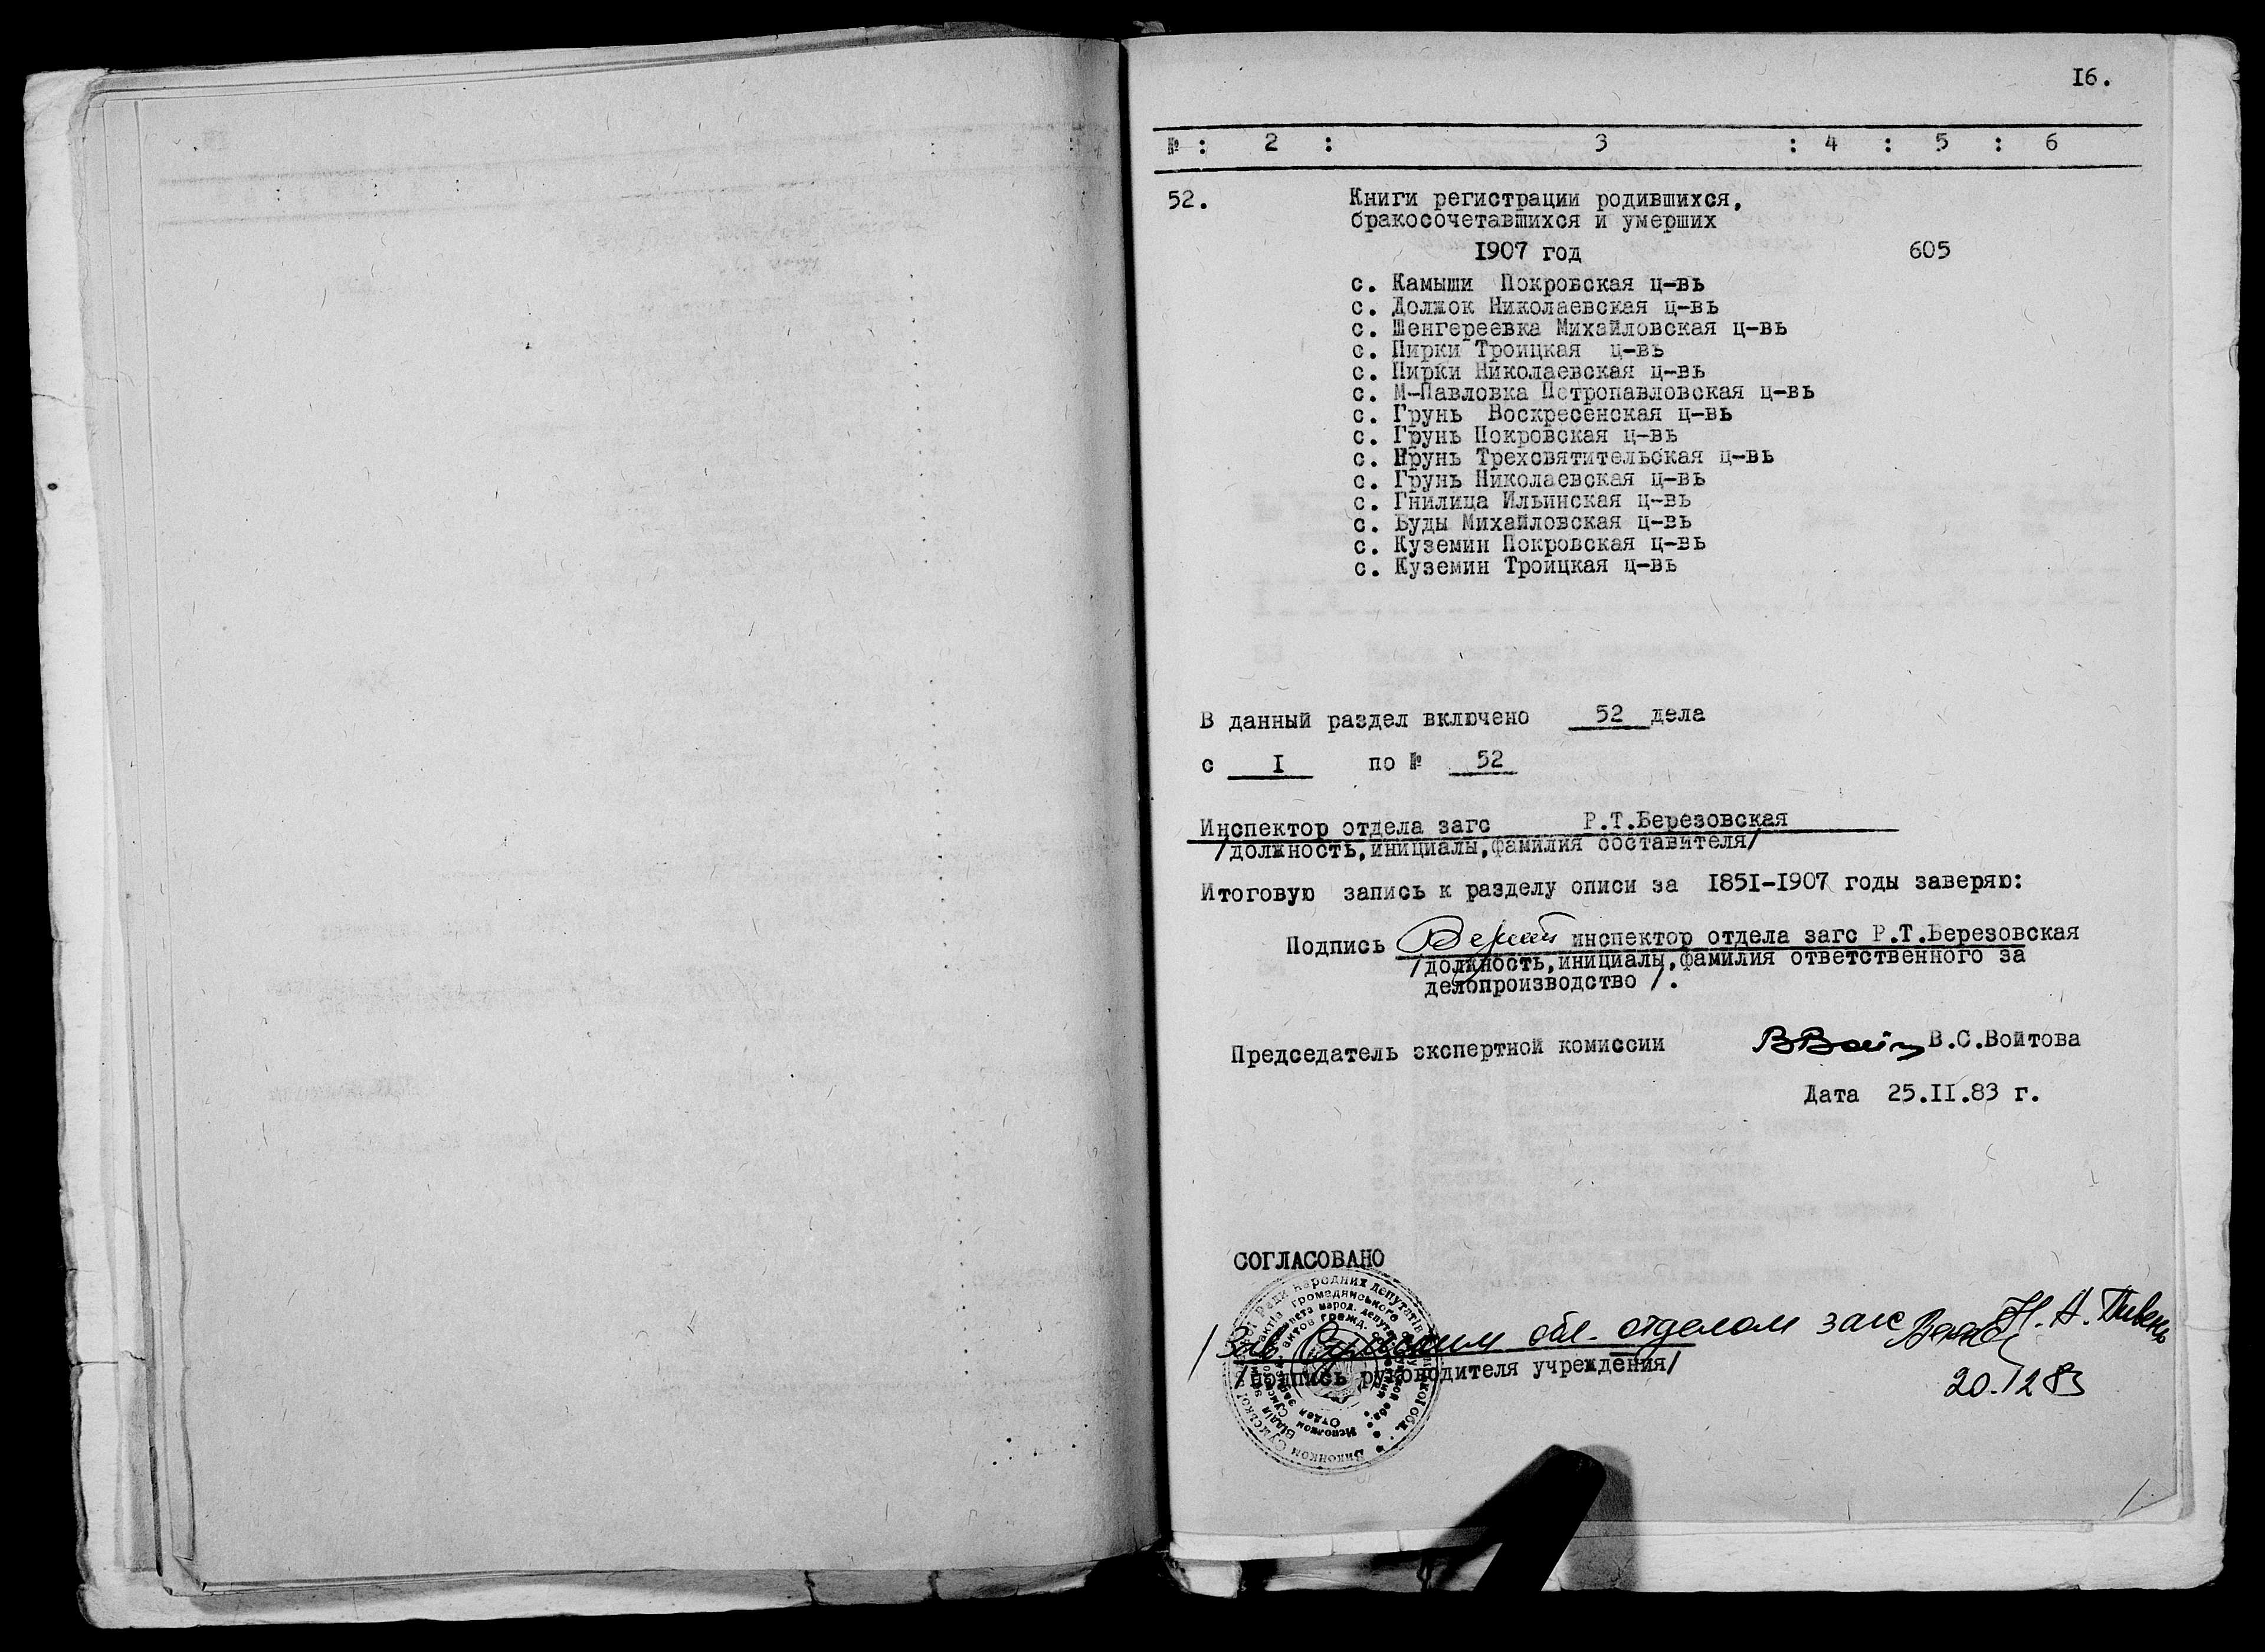 I6.
№ : 2 : 3 : 4 : 5 : 6
52. Книги регистрации родившихся,
бракосочетавшихся и умерших
I907 год 605
с. Камыши Покровская ц-вь
с. Должок Николаевская ц-вь
с. Шенгереевка Михайловская ц-вь
с. Пирки Троицкая ц-вь
с. Пирки Николаевская ц-вь
с. М-Павловка Петропавловская ц-вь
с. Грунь Воскресенская ц-вь
с. Грунь Покровская ц-вь
с. Нрунь Трехсвятительская ц-вь
с. Грунь Николаевская ц-вь
с. Гнилица Ильинская ц-вь
с. Буды Михайловская ц-вь
с. Куземин Покровская ц-вь
с. Куземин Троицкая ц-вь
В данный раздел включено 52 дела
с I по № 52
Инспектор отдела загс Р.Т.Березовская
/должность,инициалы,фамилия составителя/
Итоговую запись к разделу описи за I85I-I907 годы заверяю:
Подпись инспектор отдела загс Р.Т.Березовская
/должность,инициалы,фамилия ответственного за
делопроизводство /.
Председатель экспертной комиссии В.С.Войтова
Дата 25.II.83 г.
СОГЛАСОВАНО
/Зав. Сумским обл. отделом загс Н.А. Пивень
/подпись руководителя учреждения/
20.12 83